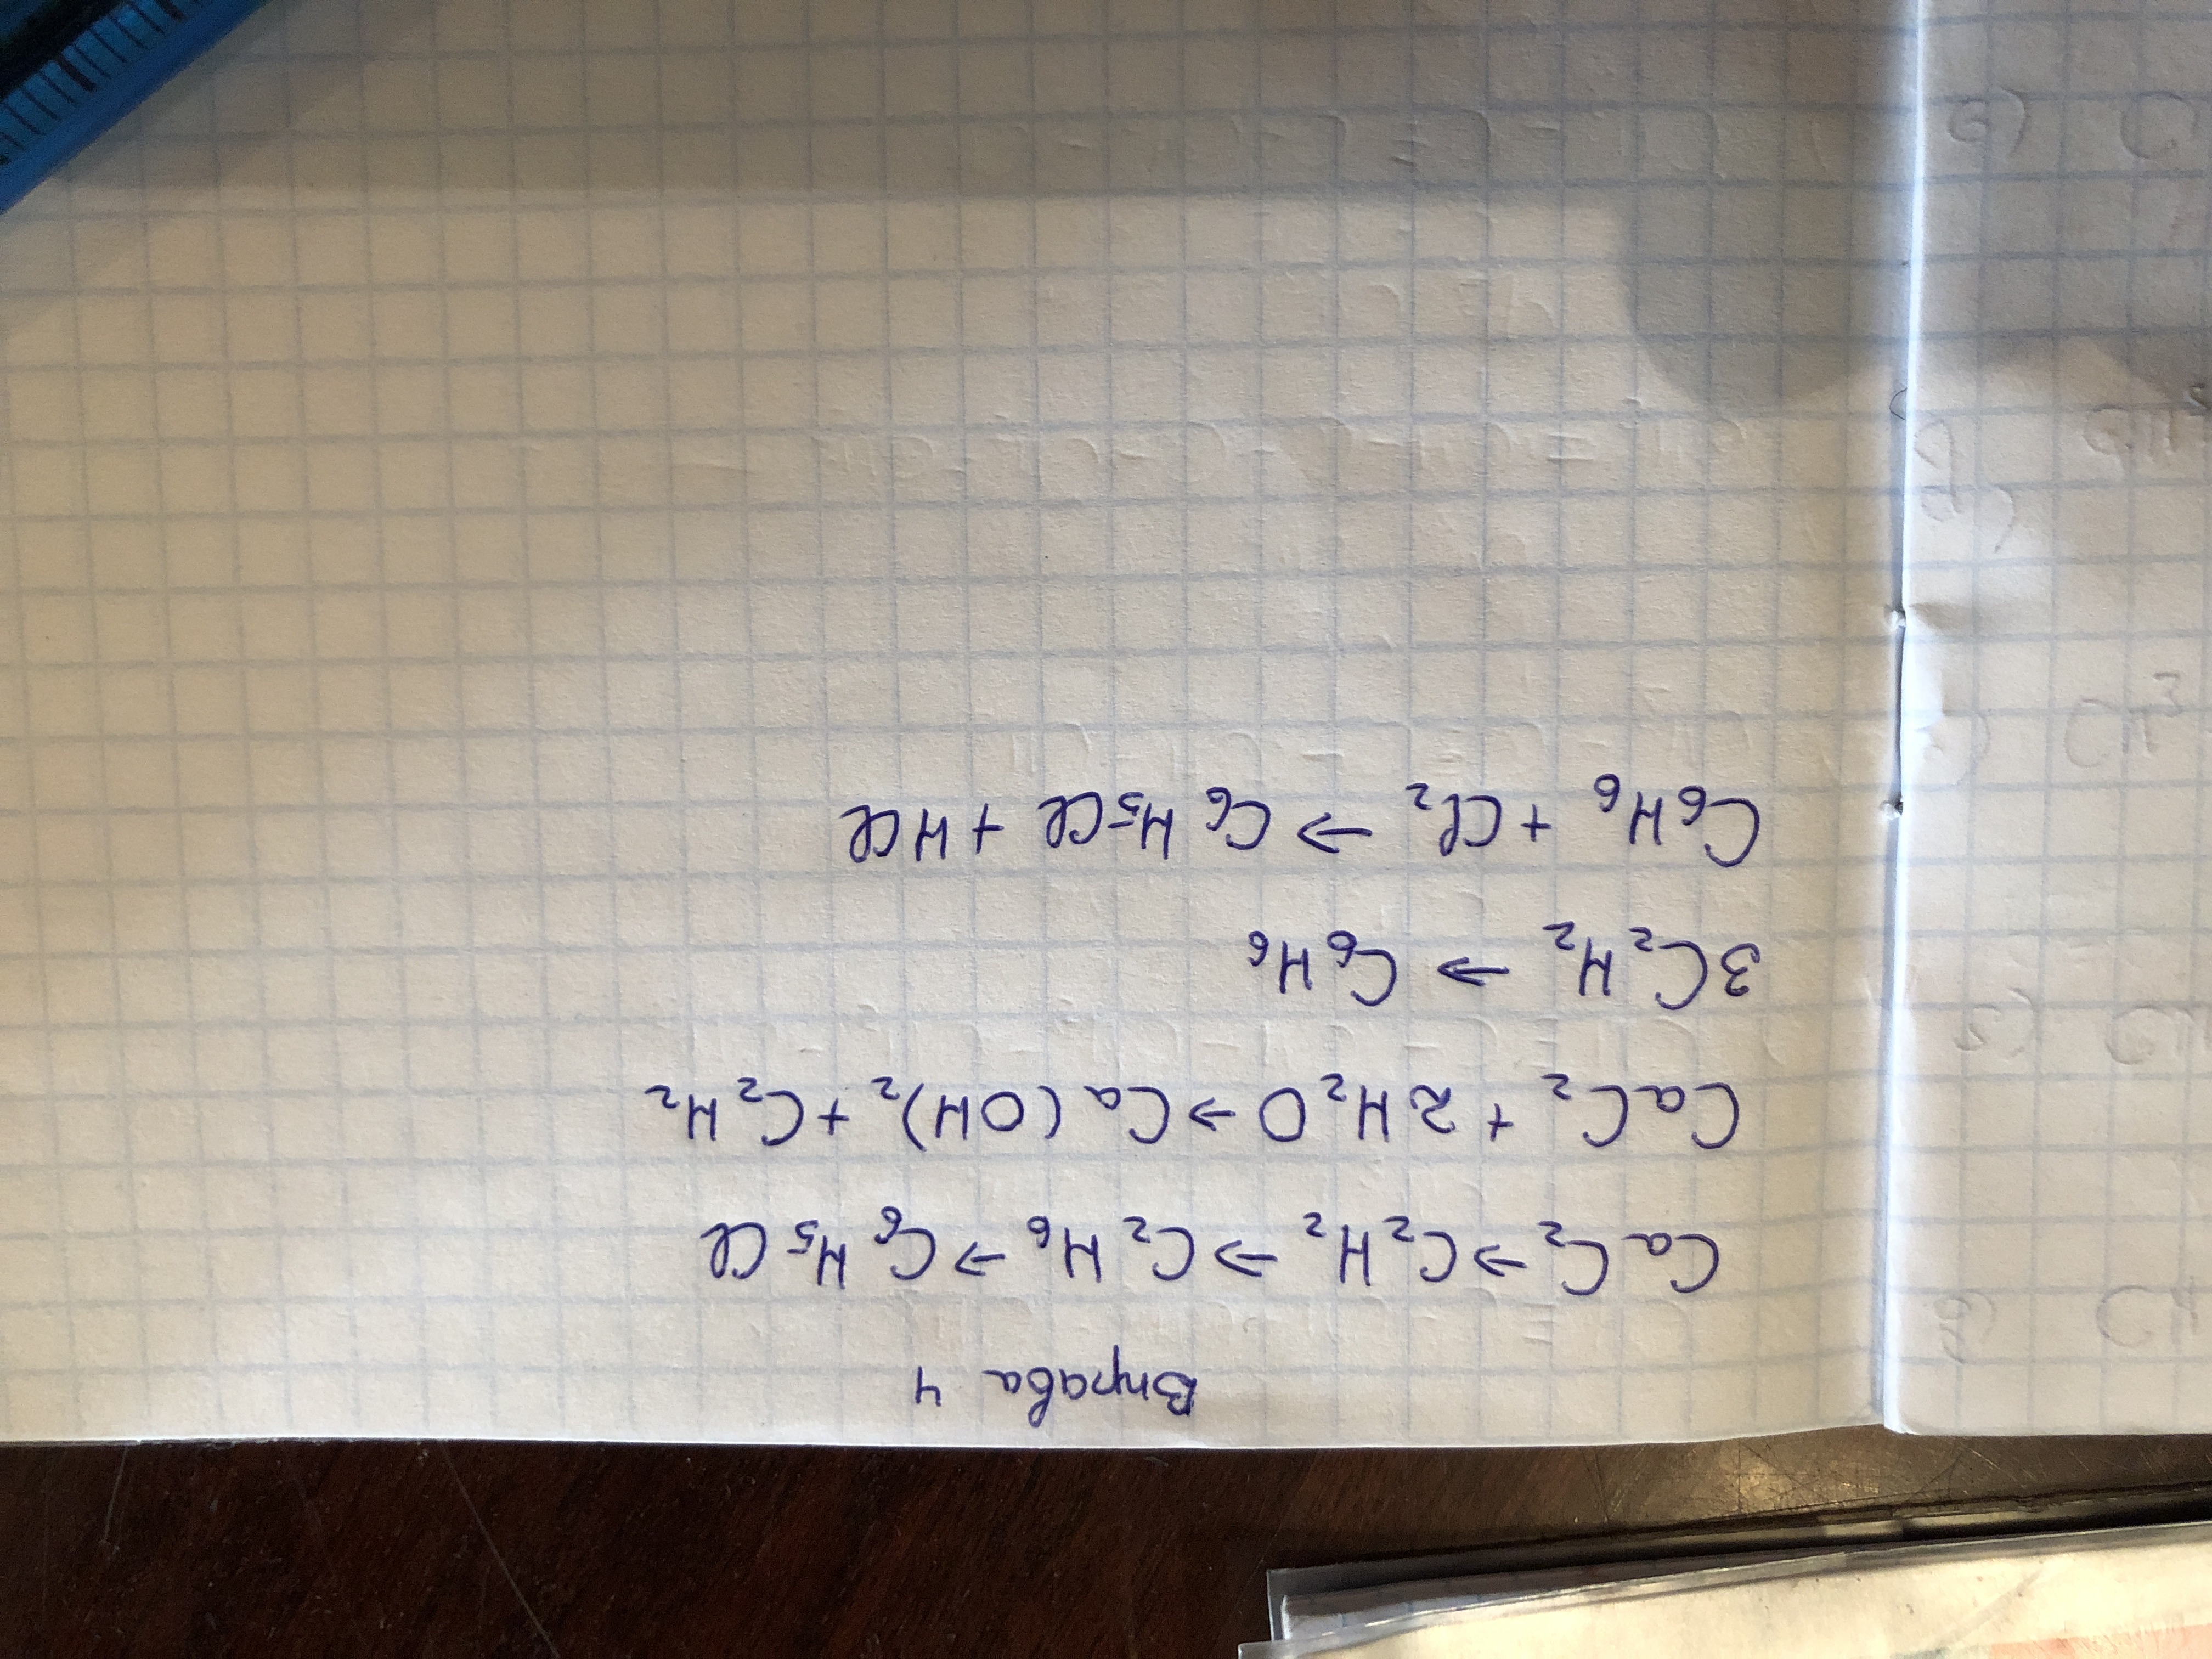 Вправа 4
CaC₂ → C₂H₂ → C₂H₆ → C₆H₅Cl
CaC₂ + 2H₂O → Ca(OH)₂ + C₂H₂
3C₂H₂ → C₆H₆
C₆H₆ + Cl₂ → C₆H₅Cl + HCl